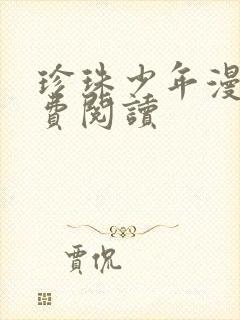 珍珠少年漫
費閱讀
賈侃